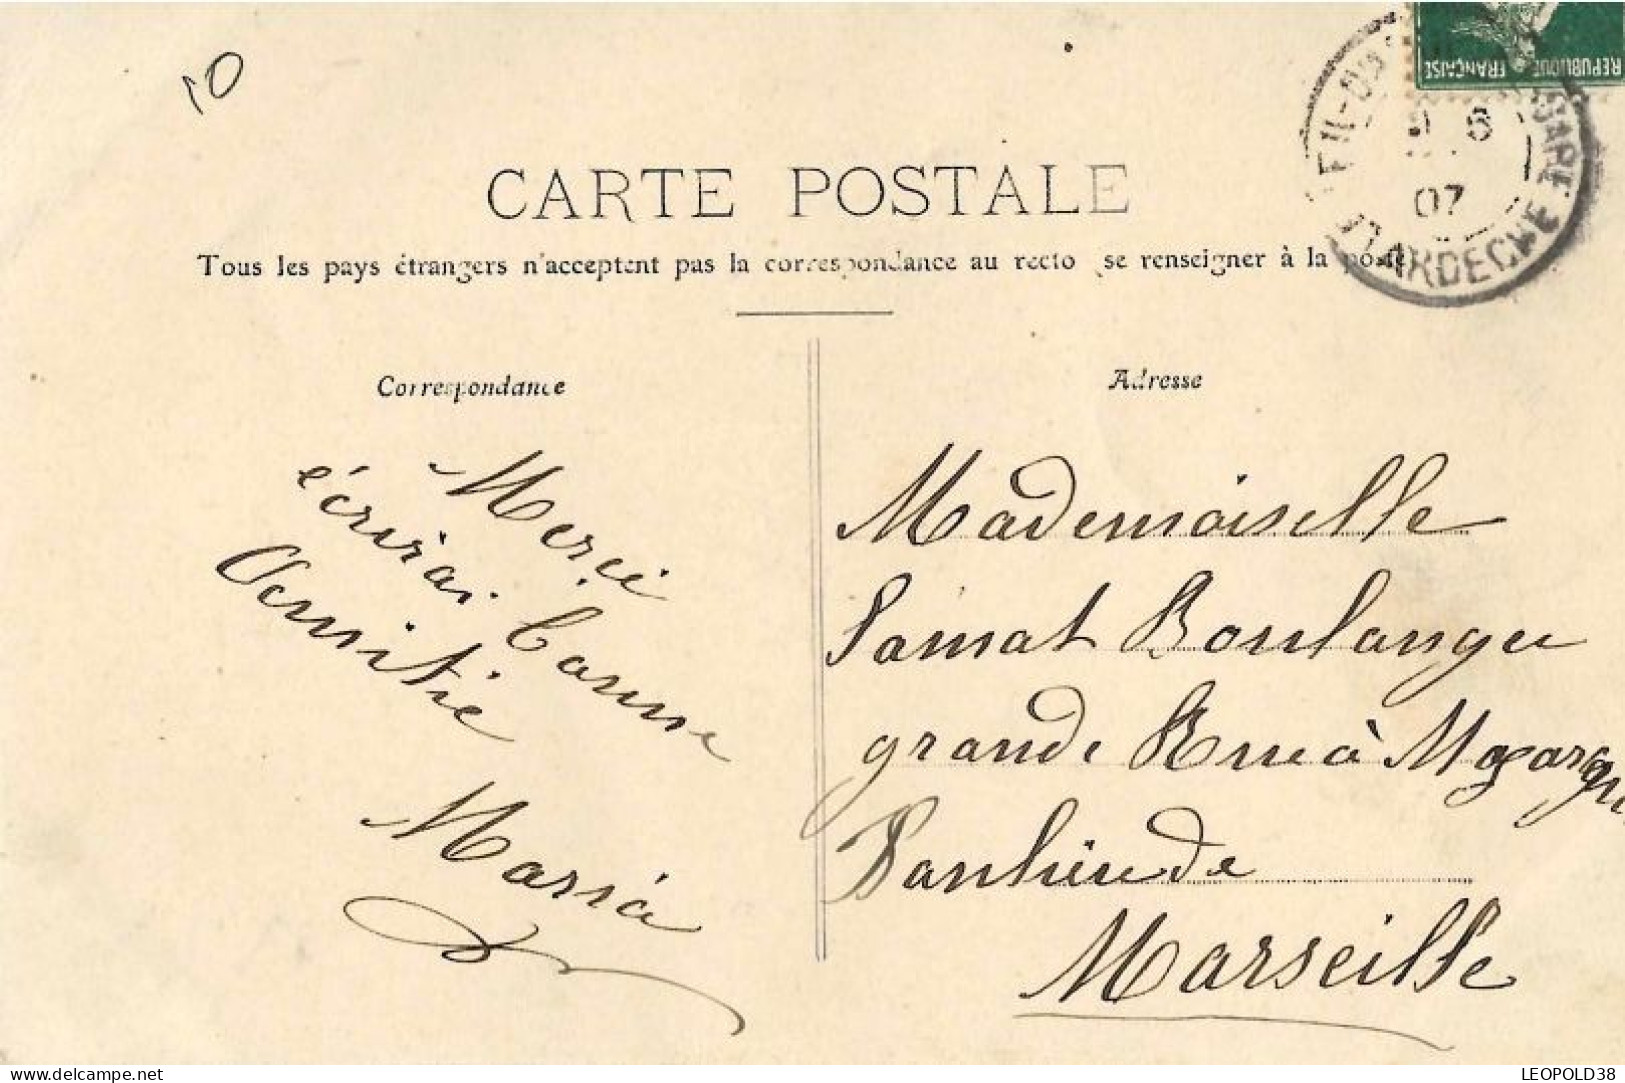 10
REPUBLIQUE FRANÇAISE
07
ARDECHE
CARTE POSTALE
Tous les pays étrangers n'acceptent pas la correspondance au recto (se renseigner à la poste)
Correspondance
Adresse
Merci
écrirai bonne
Amitié
Maria
Mademoiselle
Samat Boulanger
grande Rue à Mazargu
Banlieu de
Marseille
delcampe.net
LEOPOLD38